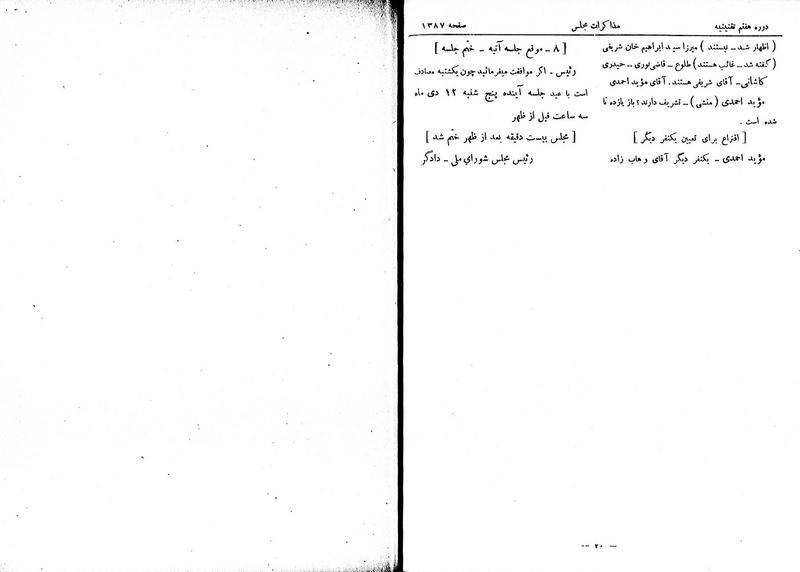 دوره هفتم تقنینیه مذاکرات مجلس صفحه ۱۳۸۷
( اظهار شد ـ نیستند ) میرزا سید ابراهیم خان شریفی
( گفته شد ـ غائب هستند ) طلوع ـ قاضی نوری ـ حیدری
کاشانی ـ آقای شریفی هستند. آقای مؤید احمدی
مؤید احمدی ( منشی ) ـ تشریف دارند؟ باز یازده تا
شده است .
[ اقتراع برای تعیین یکنفر دیگر ]
مؤید احمدی ـ یکنفر دیگر آقای وهاب زاده
[ ۸ ـ موقع جلسه آتیه ـ ختم جلسه ]
رئیس ـ اگر موافقت میفرمائید چون یکشنبه مصادف
است با عید جلسه آینده پنج شنبه ۱۲ دی ماه
سه ساعت قبل از ظهر
[ مجلس بیست دقیقه بعد از ظهر ختم شد ]
رئیس مجلس شورای ملی ـ دادگر
— ۲۰ —